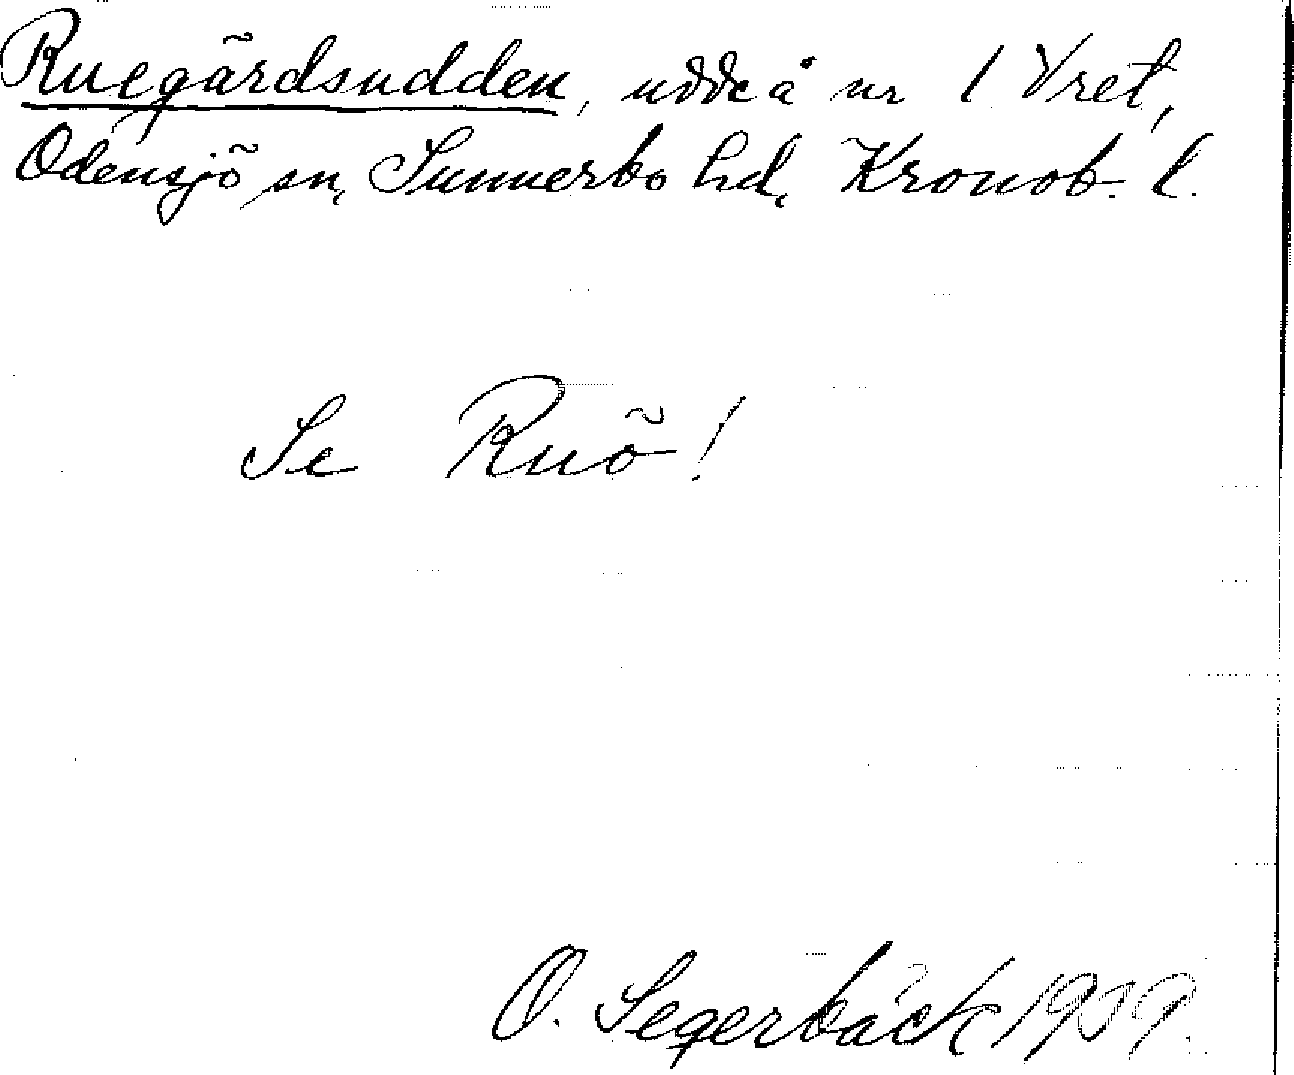 Ruegårdsudden, udde å nr 1 Vret,
Odensjö sn, Sunnerbo hd, Kronob. l.
Se Ruö!
O. Segerbäck 1959.